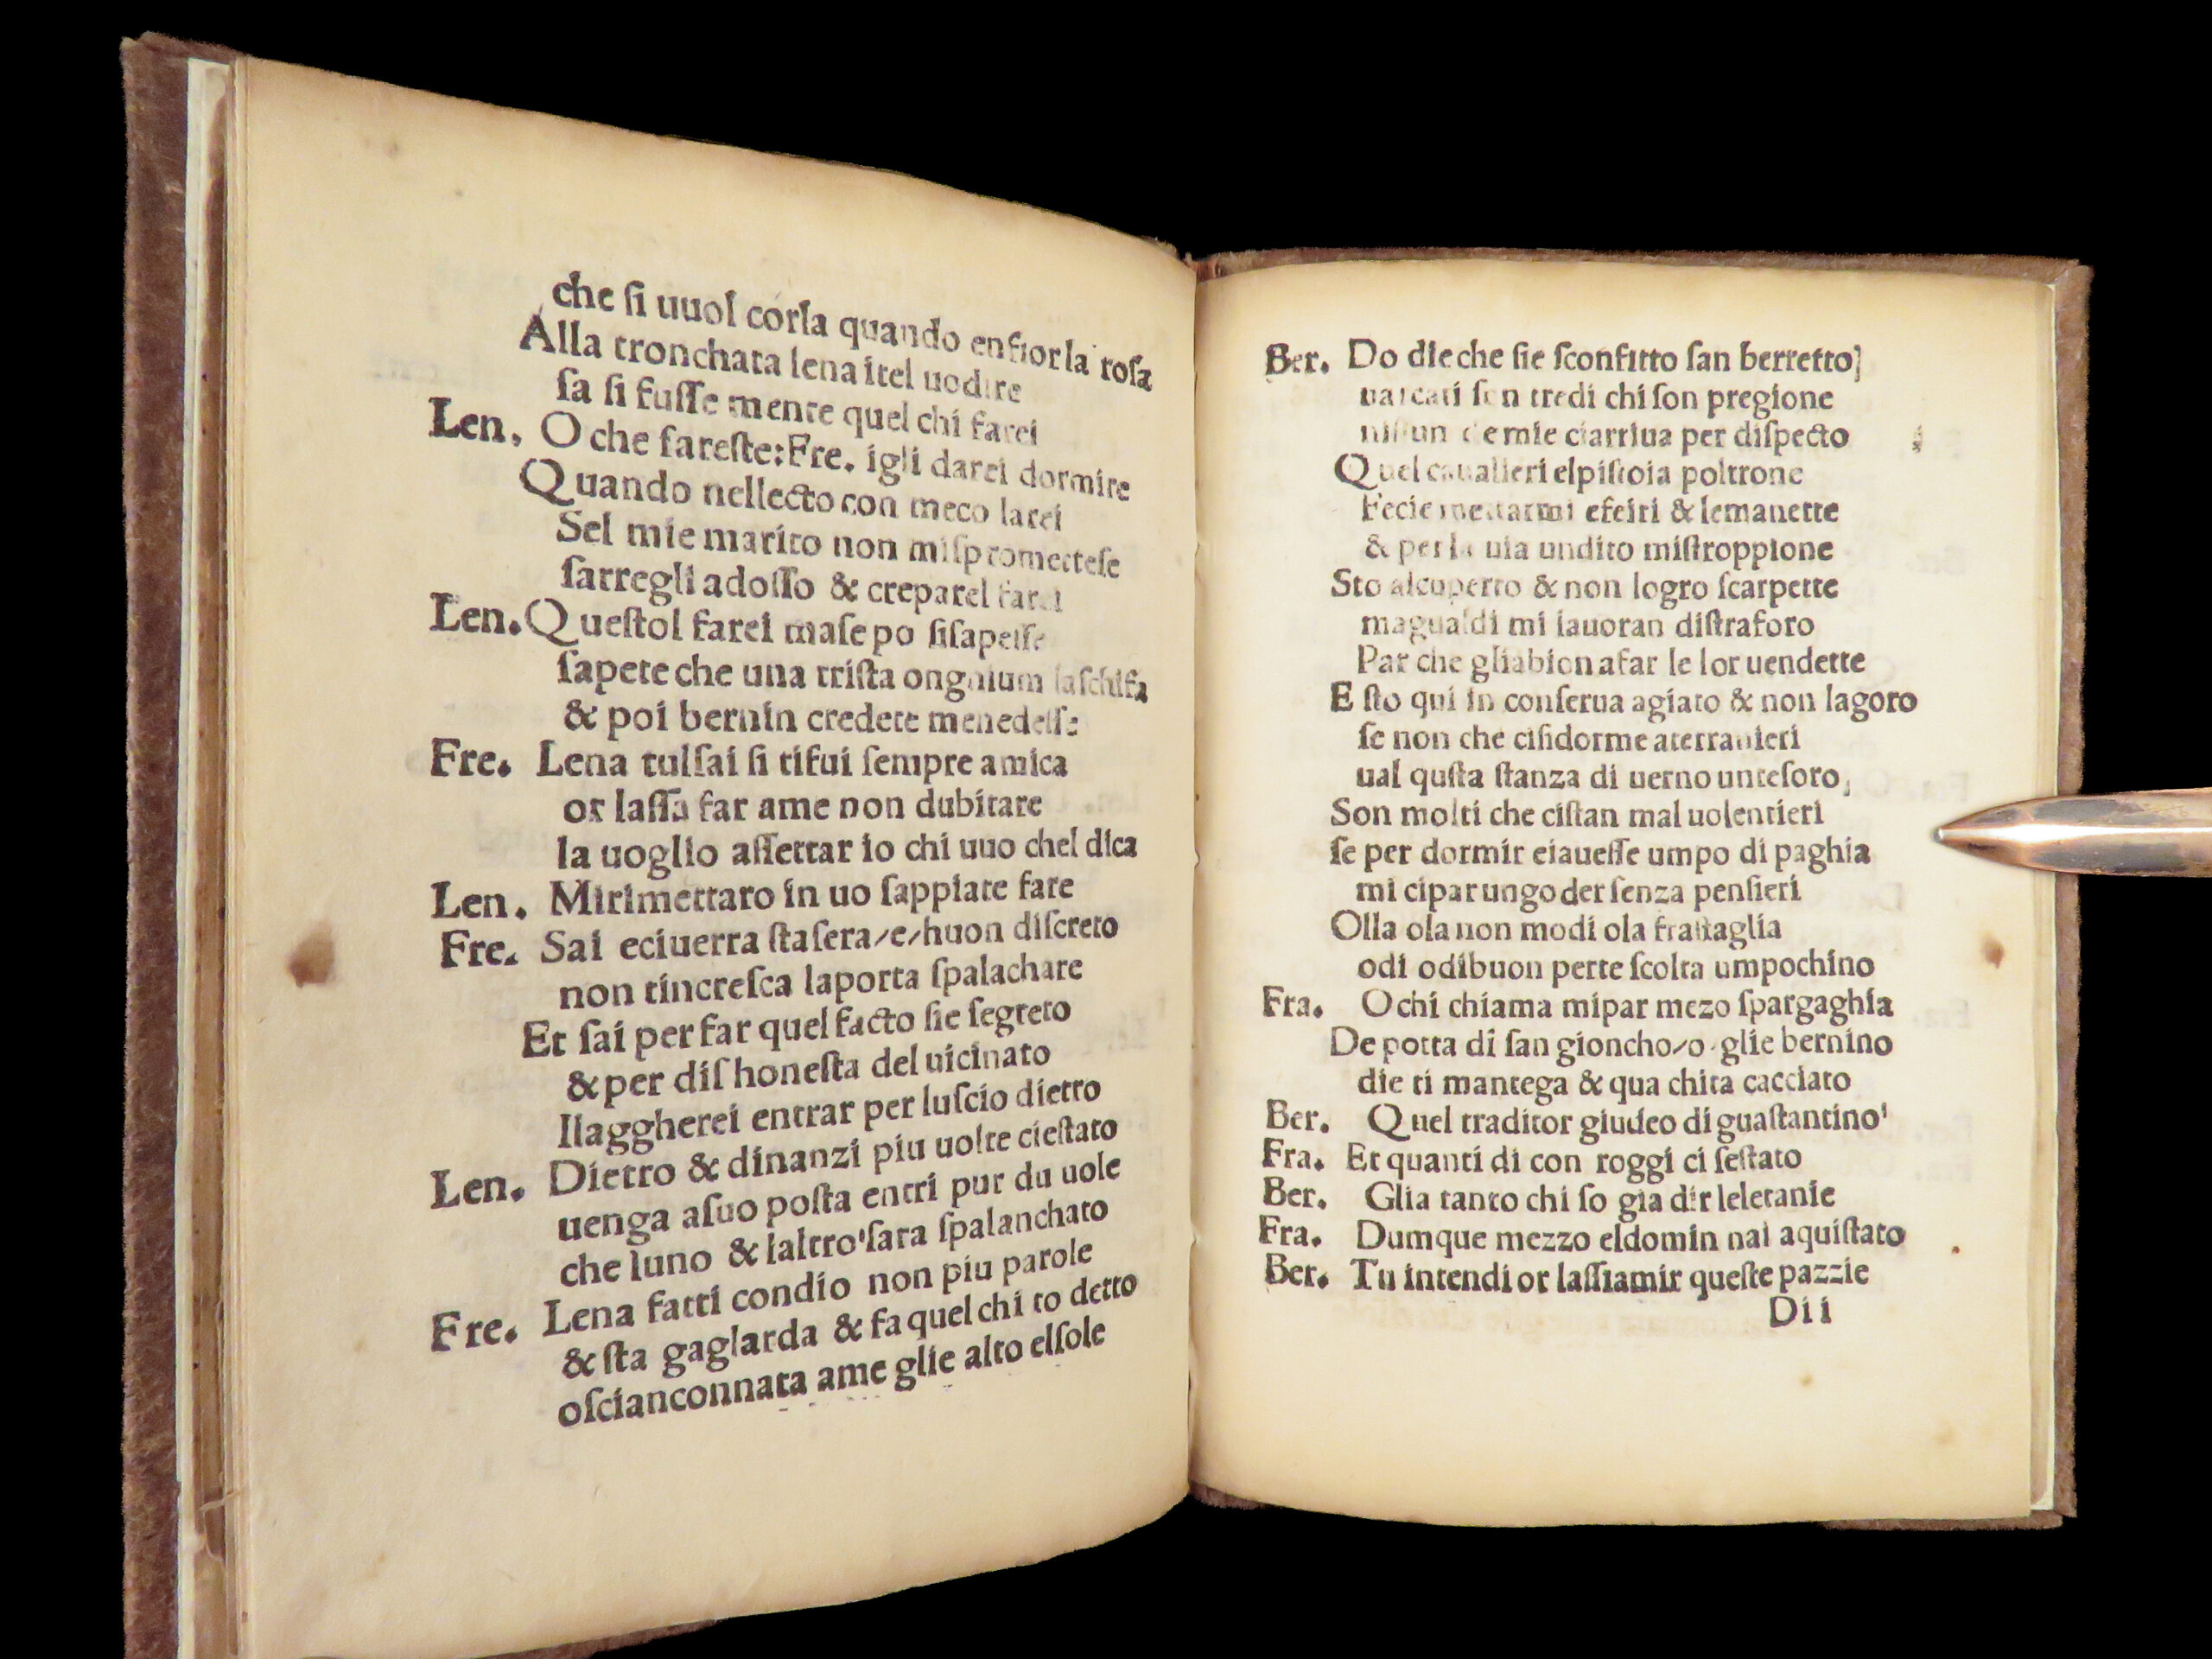 che ſi uuol corla quando enfiorla roſa
Alla tronchata lena itel uodire
ſa ſi fuſſe mente quel chi farei
Len. O che fareſte: Fre. igli darei dormire
Quando nellecto con meco larei
Sel mie marito non miſpromecteſe
ſarregli adoſſo & creparel farei
Len. Queſtol farei maſe po ſiſapeſſe
ſapete che una triſta ongnium laſchifa
& poi bernin credete menedeſſe
Fre. Lena tulſai ſi tifui ſempre amica
or laſſa far ame non dubitare
la uoglio aſſettar io chi uuo chel dica
Len. Mirimettaro in uo ſappiate fare
Fre. Sai eciuerra ſtaſera/e/huon diſcreto
non tincreſca laporta ſpalachare
Et ſai per far quel facto ſie ſegreto
& per diſ honeſta del uicinato
Ilaggherei entrar per luſcio dietro
Len. Dietro & dinanzi piu uolte cieſtato
uenga aſuo poſta entri pur du uole
che luno & laltro' ſara ſpalanchato
Fre. Lena fatti condio non piu parole
& ſta gaglarda & fa quel chi to detto
oſcianconnata ame glie alto elſole
Ber. Do die che ſie ſconfitto ſan berretto
tredi chi ſon pregione
de mie ciarriua per diſpecto
Quel caualieri elpiſtoia poltrone
Fecie mettarmi efeiri & lemanette
& per la uia undito miſtroppione
Sto alcuperto & non logro ſcarpette
magualdi mi lauoran diſtraforo
Par che gliabion afar le lor uendette
E ſto qui in conſerua agiato & non lagoro
ſe non che ciſidorme aterranieri
ual quſta ſtanza di uerno unteſoro
Son molti che ciſtan mal uolentieri
ſe per dormir eiaueſſe umpo di paghia
mi cipar ungoder ſenza penſieri
Olla ola non modi ola frattaglia
odi odibuon perte ſcolta umpochino
Fra. O chi chiama mipar mezo ſpargaghia
De potta di ſan gioncho/o glie bernino
die ti mantega & qua chita cacciato
Ber. Quel traditor giudeo di guaſtantino'
Fra. Et quanti di con roggi ci ſeſtato
Ber. Glia tanto chi ſo gia dir leletanie
Fra. Dumque mezzo eldomin nai aquiſtato
Ber. Tu intendi or laſſiamir queſte pazzie
D i i